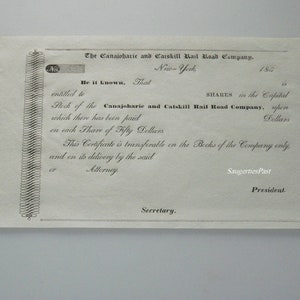 The Canajoharie and Catskill Rail Road Company.
No.
New-York, 183
Be it known, That is
entitled to SHARES in the Capital
Stock of the Canajoharie and Catskill Rail Road Company, upon
which there has been paid Dollars
on each Share of Fifty Dollars.
This Certificate is transferable on the Books of the Company only,
and on its delivery by the said
or Attorney.
SaugertiesPast
President.
Secretary.